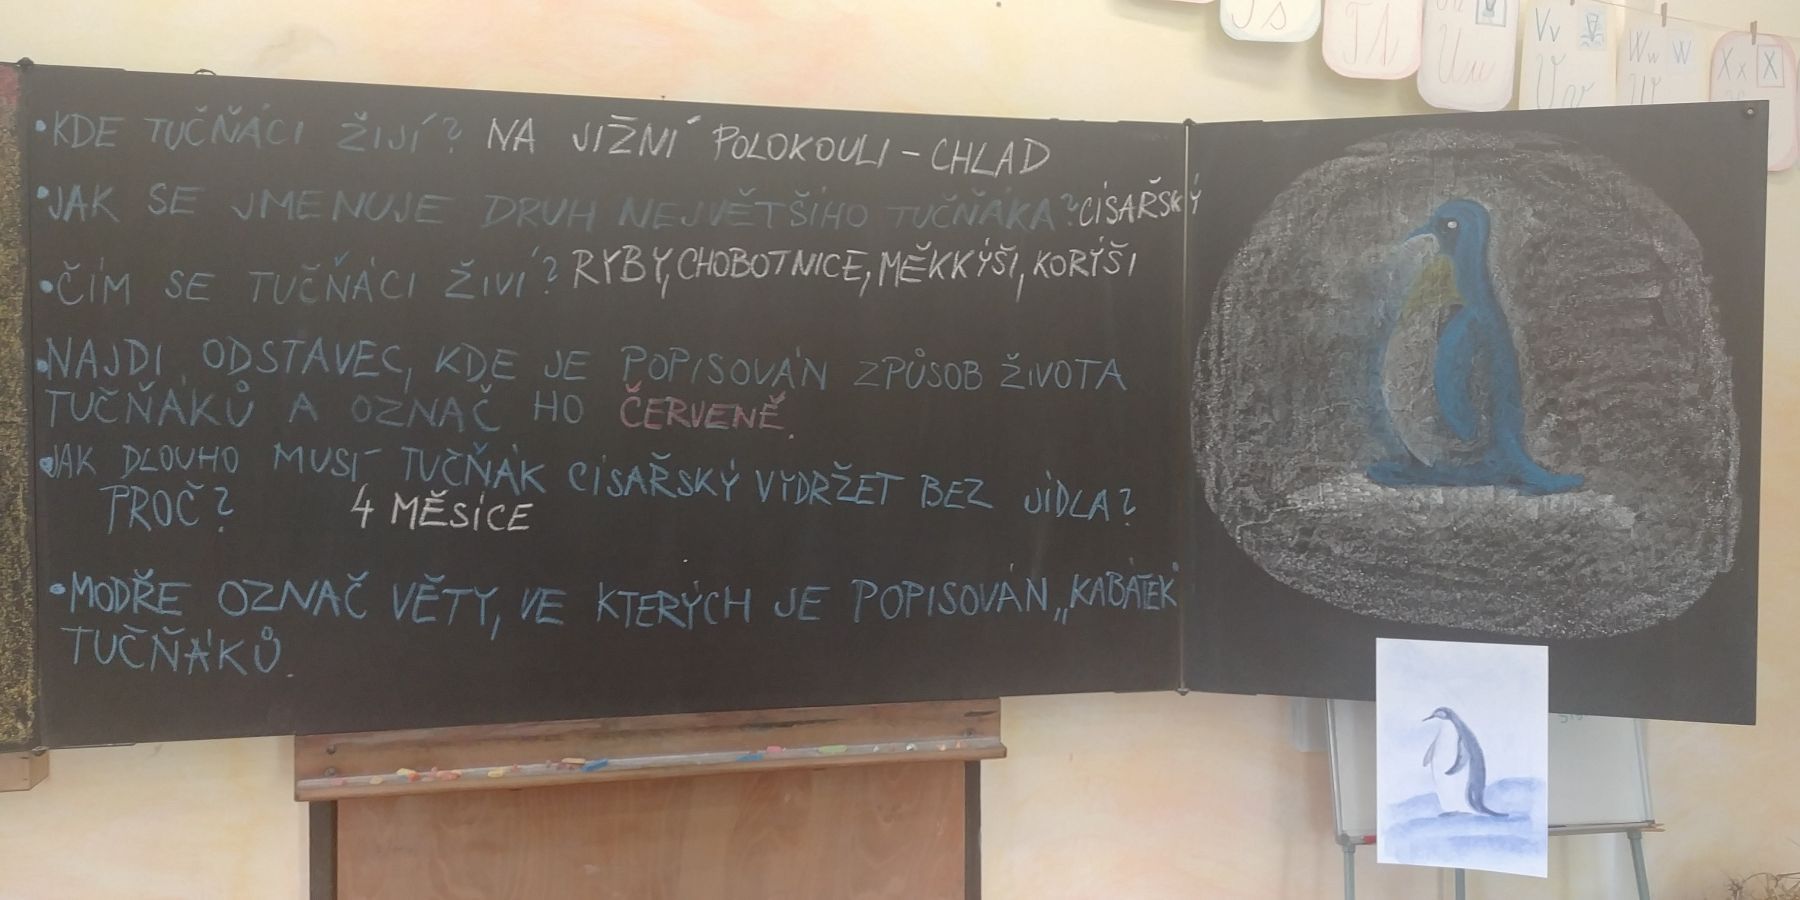 •KDE TUČŇÁCI ŽIJÍ? NA JIŽNÍ POLOKOULI – CHLAD
•JAK SE JMENUJE DRUH NEJVĚTŠÍHO TUČŇÁKA? CÍSAŘSKÝ
•ČÍM SE TUČŇÁCI ŽIVÍ? RYBY, CHOBOTNICE, MĚKKÝŠI, KORÝŠI
•NAJDI ODSTAVEC, KDE JE POPISOVÁN ZPŮSOB ŽIVOTA
TUČŇÁKŮ A OZNAČ HO ČERVENĚ.
•JAK DLOUHO MUSÍ TUČŇÁK CÍSAŘSKÝ VYDRŽET BEZ JÍDLA?
PROČ? 4 MĚSÍCE
•MODŘE OZNAČ VĚTY, VE KTERÝCH JE POPISOVÁN „KABÁTEK"
TUČŇÁKŮ.
Vv
Ww W
Xx X